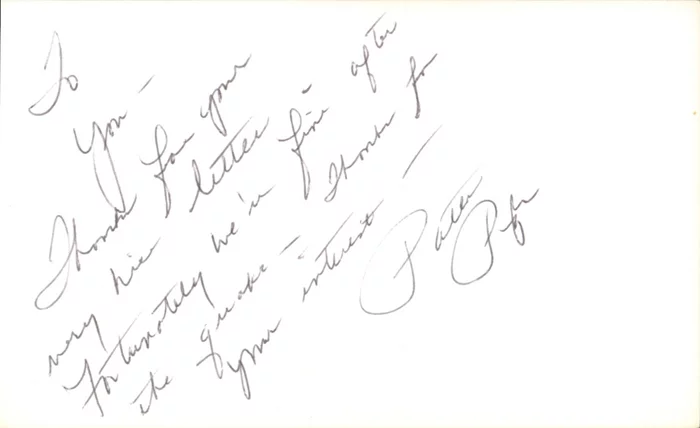 To
You –
Thanks for your
very nice letter
Fortunately we're fine after
the quake – Thanks for
your interest –